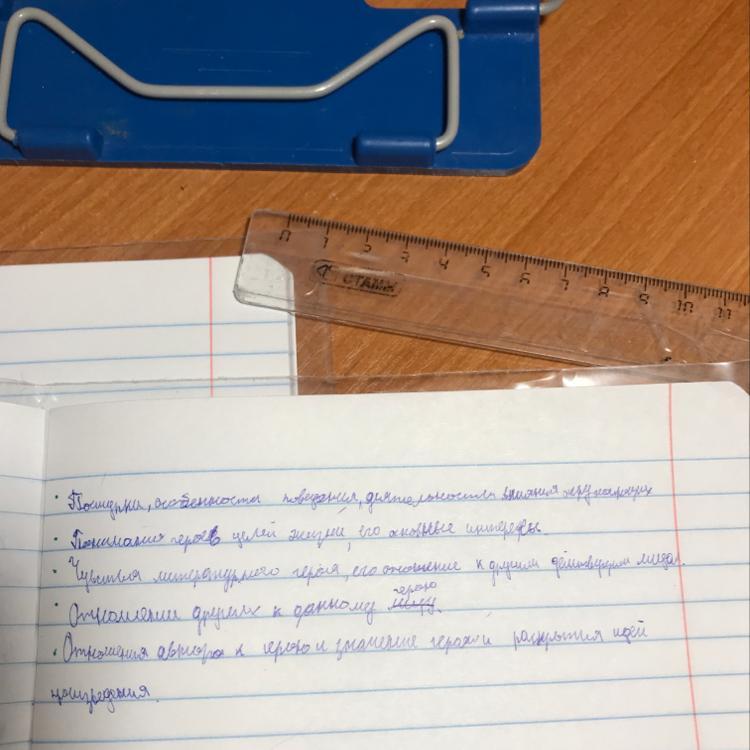 0 1 2 3 4 5 6 7 8 9 10 11
СТАММ
• Поступки, особенности поведения, деятельность влияния окружающих
• Понимания героев целей жизни, его основные интересы.
• Чувства литературного героя, его отношение к другим действующим лицам.
Отношении других к данному герою
• Отношения автора к герою и значение героя раскрытия идей
произведения.